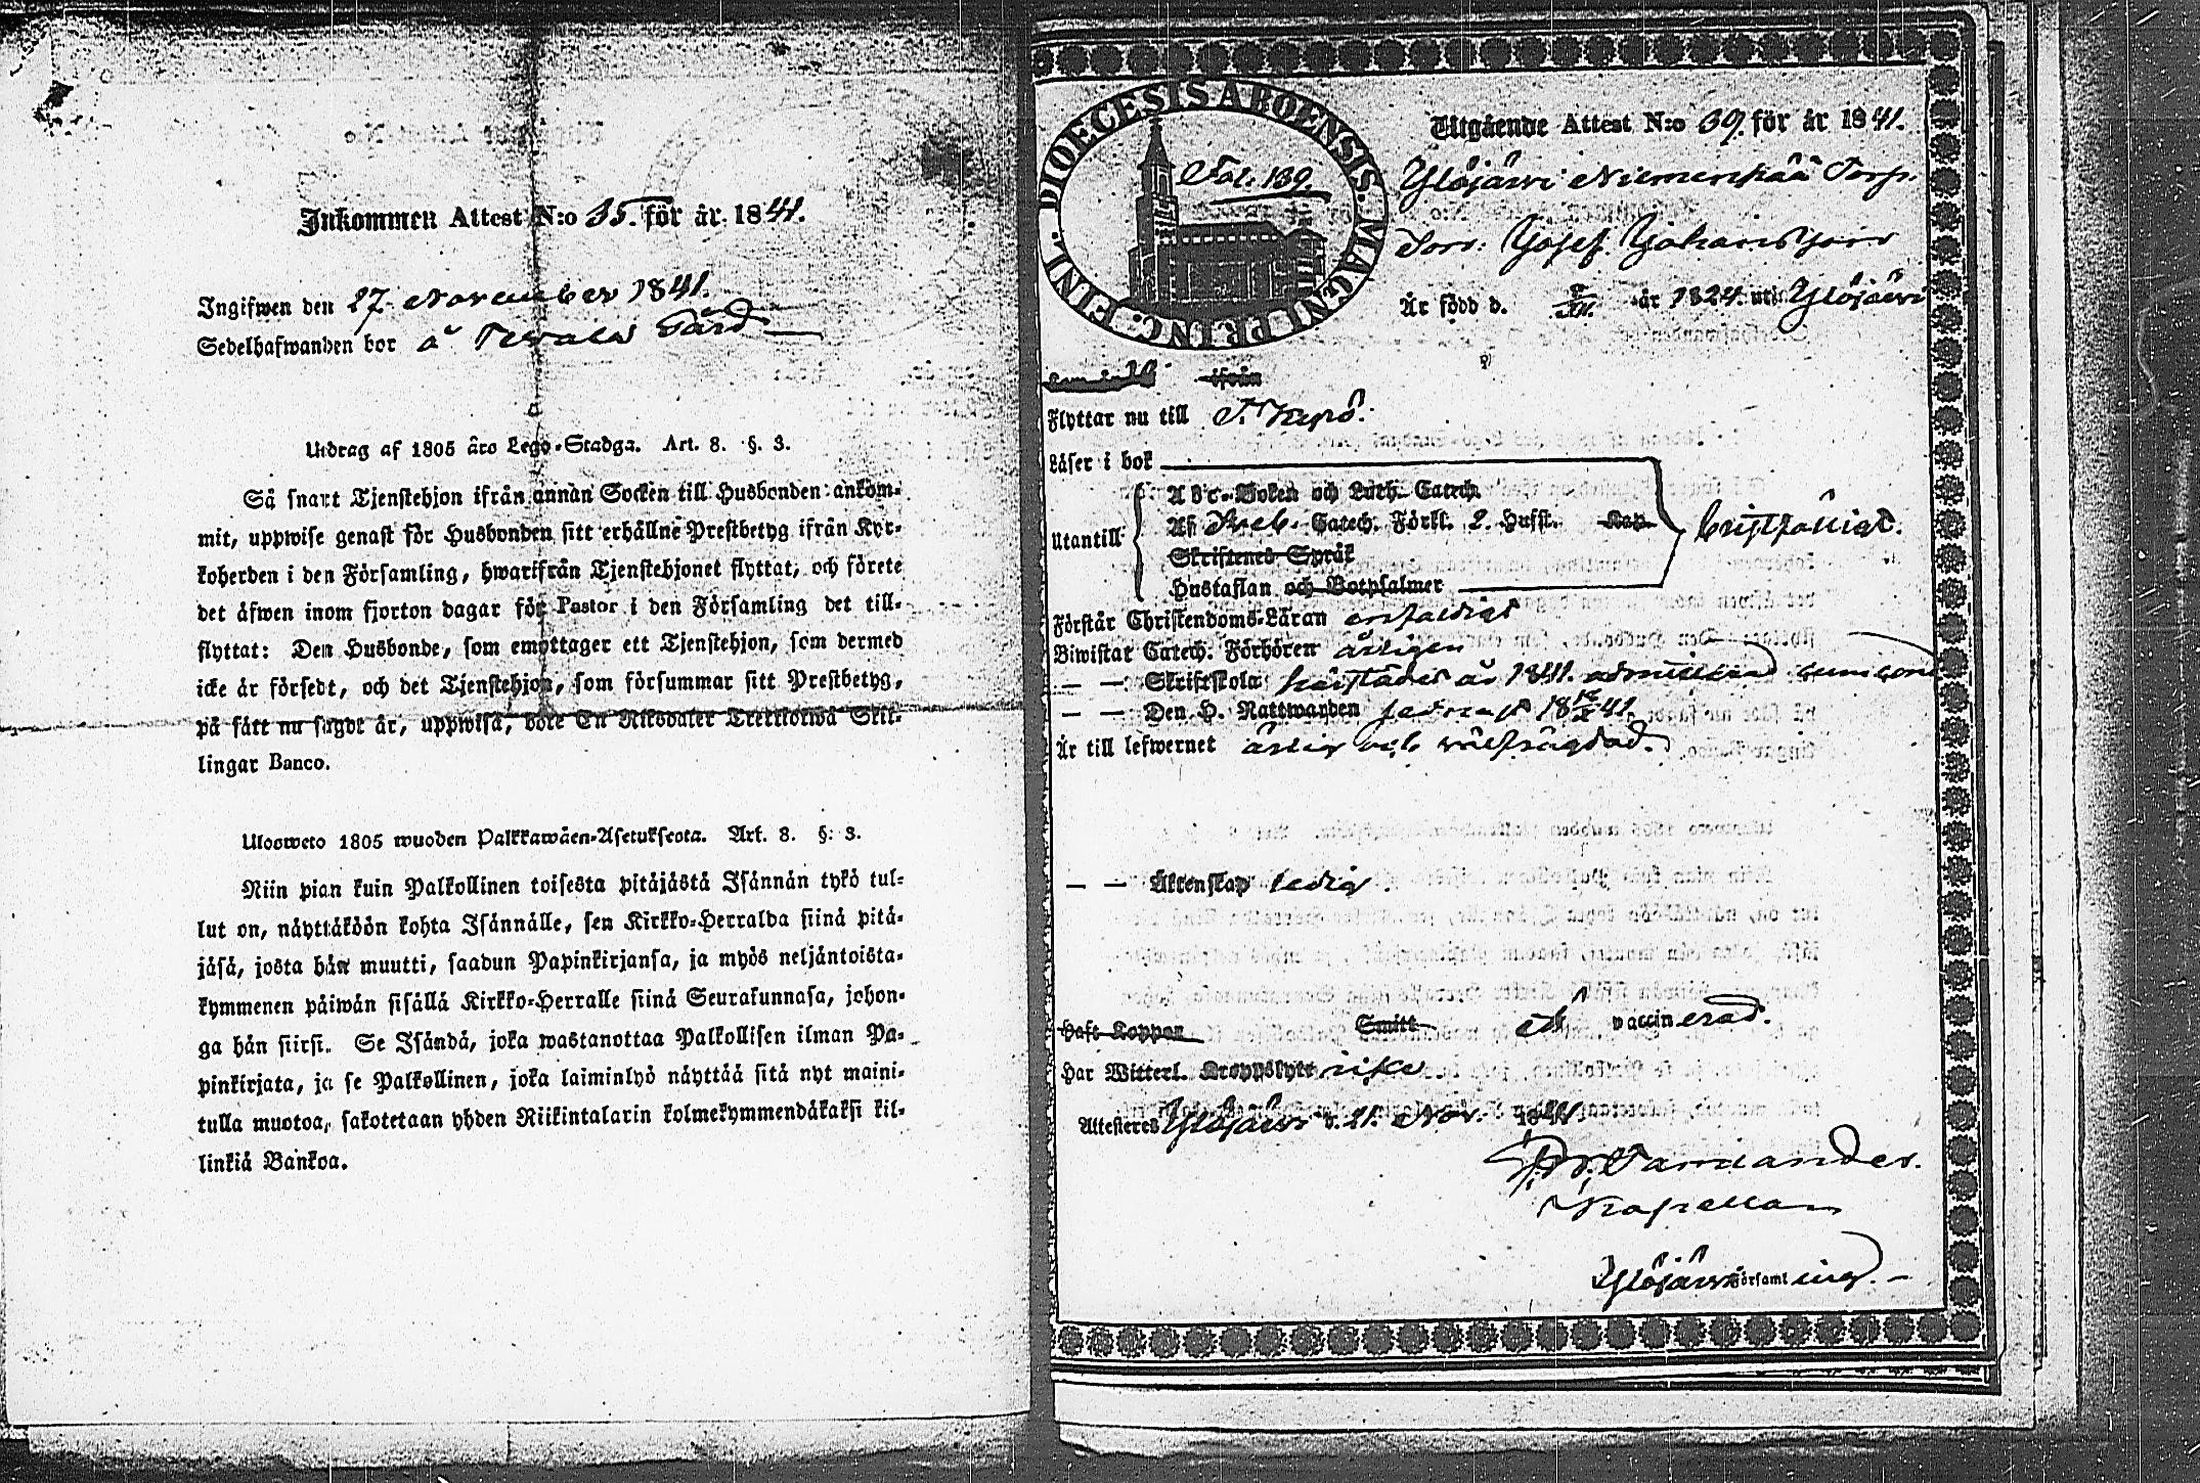 Inkommen Attest N:o 35. för år 1841.
Ingifwen den 27. November 1841.
Sedelhafwanden bor å Gård
Utdrag af 1805 års Lego-Stadga. Art. 8. §. 3.
Så snart Tjenstehjon ifrån annan Socken till Husbonden ankom-
mit, uppwise genast för Husbonden sitt erhållne Prestbetyg ifrån Kyr-
koherden i den Församling, hwarifrån Tjenstehjonet flyttat, och förete
det äfwen inom fjorton dagar för Pastor i den Församling det till-
flyttat: Den Husbonde, som emottager ett Tjenstehjon, som dermed
icke är försedt, och det Tjenstehjon, som försummar sitt Prestbetyg,
på sätt nu sagdt är, uppwisa, böte En Riksdaler Trettiotwå Skil-
lingar Banco.
Ulosweto 1805 wuoden Palkkawäen-Asetuksesta. Art. 8. §. 3.
Niin pian kuin Palkollinen toisesta pitäjästä Isännän tykö tul-
lut on, näyttäköön kohta Isännälle, sen Kirkko-Herralda siinä pitä-
jäsä, josta hän muutti, saadun Papinkirjansa, ja myös neljäntoista-
kymmenen päiwän sisällä Kirkko-Herralle siinä Seurakunnasa, johon-
ga hän siirsi. Se Isändä, joka wastanottaa Palkollisen ilman Pa-
pinkirjata, ja se Palkollinen, joka laiminlyö näyttää sitä nyt maini-
tulla muotoa, sakotetaan yhden Riikintalarin kolmekymmendäkaksi kil-
linkiä Bankoa.
DIOECESIS ABOENSIS. MAGNI PRINC. FINL.
Fol. 139.
Utgående Attest N:o 39. för år 1841.
Ylöjärvi Niemenpää Torp.
Son: Josef Johansson
Är född d. år 1824. uti Ylöjärvi
ifrån
Flyttar nu till T. Kyrö.
Läser i bok
Utantill
A B C-Boken och Luth. Catech.
Af Sveb. Catech. Förkl. 2. Hufst. Kap.
Skriftenes Språk
Hustaflan och Botpsalmer
bristfälligt.
Förstår Christendoms-Läran enfaldigt
Biwistar Catech. Förhören årligen
— — Skriftskola härstädes år 1841. admitterad
— — Den H. Nattwarden 1841.
Är till lefwernet ärlig och välfrägdad.
— — Äktenskap ledig.
Haft Koppor Smitt vaccinerad.
Har Witterl. Kroppslyte icke
Attesteres Ylöjärvi d. 21. Nov. 1841.
Kapellan
Ylöjärvi Församling. —